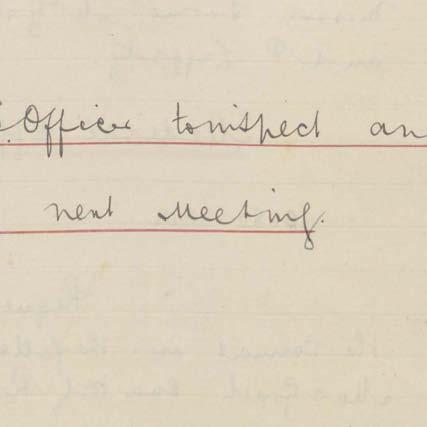 Officer to inspect an
next Meeting.